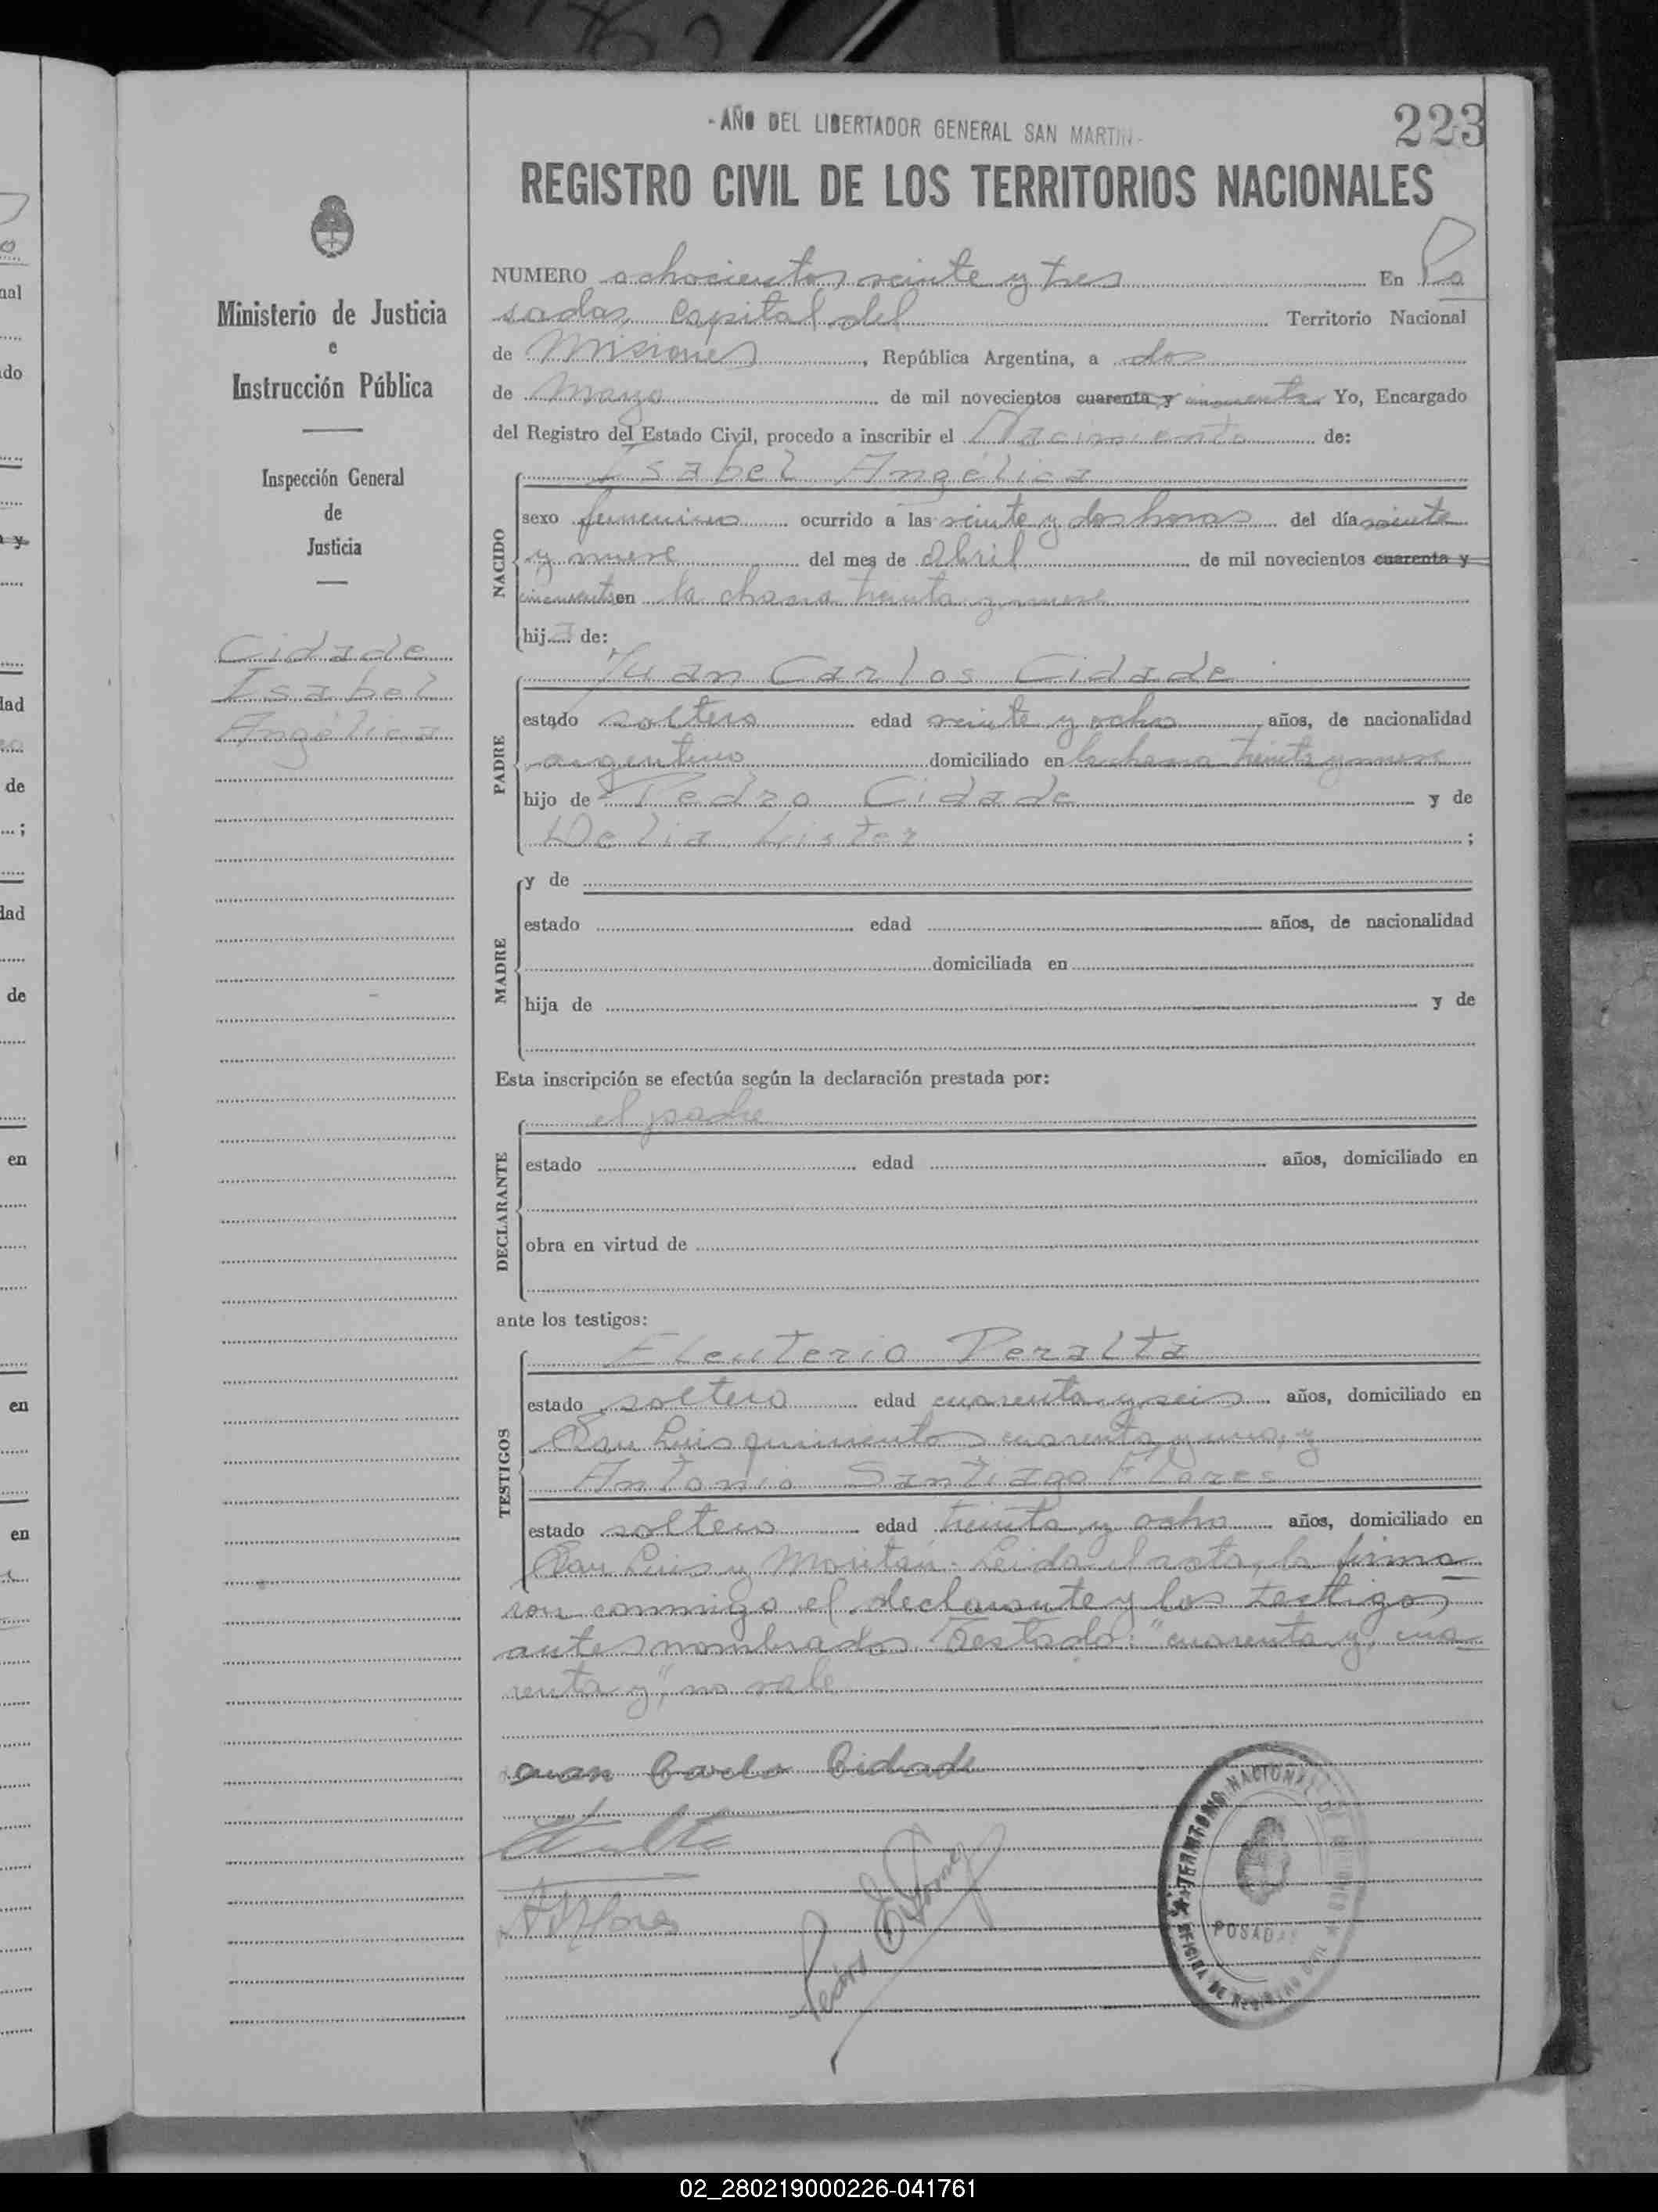 - AÑO DEL LIBERTADOR GENERAL SAN MARTIN -
223
REGISTRO CIVIL DE LOS TERRITORIOS NACIONALES
Ministerio de Justicia
e
Instrucción Pública
Inspección General
de
Justicia
Cidade
Isabel
Angélica
NUMERO ochocientos veinte y tres En Po
sadas Capital del Territorio Nacional
de Misiones, República Argentina, a dos
de Mayo de mil novecientos cuarenta y cincuenta Yo, Encargado
del Registro del Estado Civil, procedo a inscribir el Nacimiento de:
NACIDO
Isabel Angélica
sexo femenino ocurrido a las veinte y dos horas del día veinte
y nueve del mes de Abril de mil novecientos cuarenta y
cincuenta en la chacra treinta y nueve
hija de:
PADRE
Juan Carlos Cidade
estado soltero edad veinte y ocho años, de nacionalidad
argentino domiciliado en la chacra treinta y nueve
hijo de Pedro Cidade y de
Delia Lister ;
MADRE
y de
estado edad años, de nacionalidad
domiciliada en
hija de y de
Esta inscripción se efectúa según la declaración prestada por:
DECLARANTE
el padre
estado edad años, domiciliado en
obra en virtud de
ante los testigos:
TESTIGOS
Eleuterio Peralta
estado soltero edad cuarenta y seis años, domiciliado en
San Luis quinientos cuarenta y uno, y
Antonio Santiago Flores
estado soltero edad treinta y ocho años, domiciliado en
San Luis y Moritán. Leida el acta, la firma
ron conmigo el declarante y los testigos
antes nombrados. Testado: "cuarenta y, cua
renta y", no vale
Juan Carlo Cidade
Flores
TERRITORIO NACIONAL DE MISIONES
POSADAS
OFICINA DE REGISTRO CIVIL
02_280219000226-041761